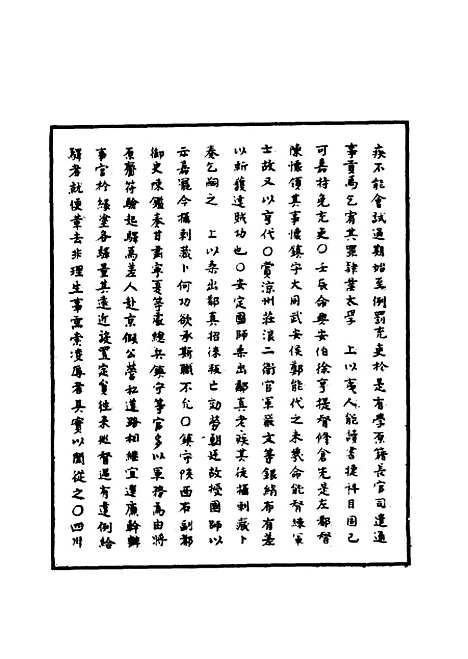 疾不能會試過期始至例罰充吏於是有學原籍長官司遣通
事貢馬乞宥其罪肄業太學　上以夷人能讀書捷科目固已
可嘉特免充吏〇壬辰命興安伯徐亨提督修倉先是左都督
陳懷領其事懷鎮守大同武安侯鄭能代之未幾命能督練軍
士故又以亨代〇賞涼州莊浪二衛官軍嚴文等銀絹布有差
以斬獲達賊功也〇安定國師桑出鄰真老疾其徒攝剌藏卜
奏乞嗣之　上以桑出鄰真招徠叛亡効勞朝廷故授國師以
示嘉寵今攝剌藏卜何功欲承斯職不允〇鎮守陝西右副都
御史陳鎰奏甘肅寧夏等處總兵鎮守等官多以軍務為由將
原齎符驗起驛馬差人赴京假公營私道路相繼宜選廉幹辦
事官於緣塗各驛量其遠近設置定賀往來巡督遇有違例給
驛者就便革去非理生事需索凌辱者具實以聞從之〇四川